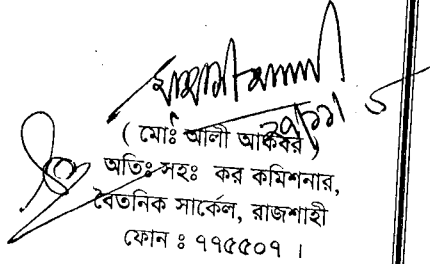 ( মোঃ আলী আকবর )
অতিঃ সহঃ কর কমিশনার,
বৈতনিক সার্কেল, রাজশাহী
ফোন ঃ ৭৭৫৫০৭ ।